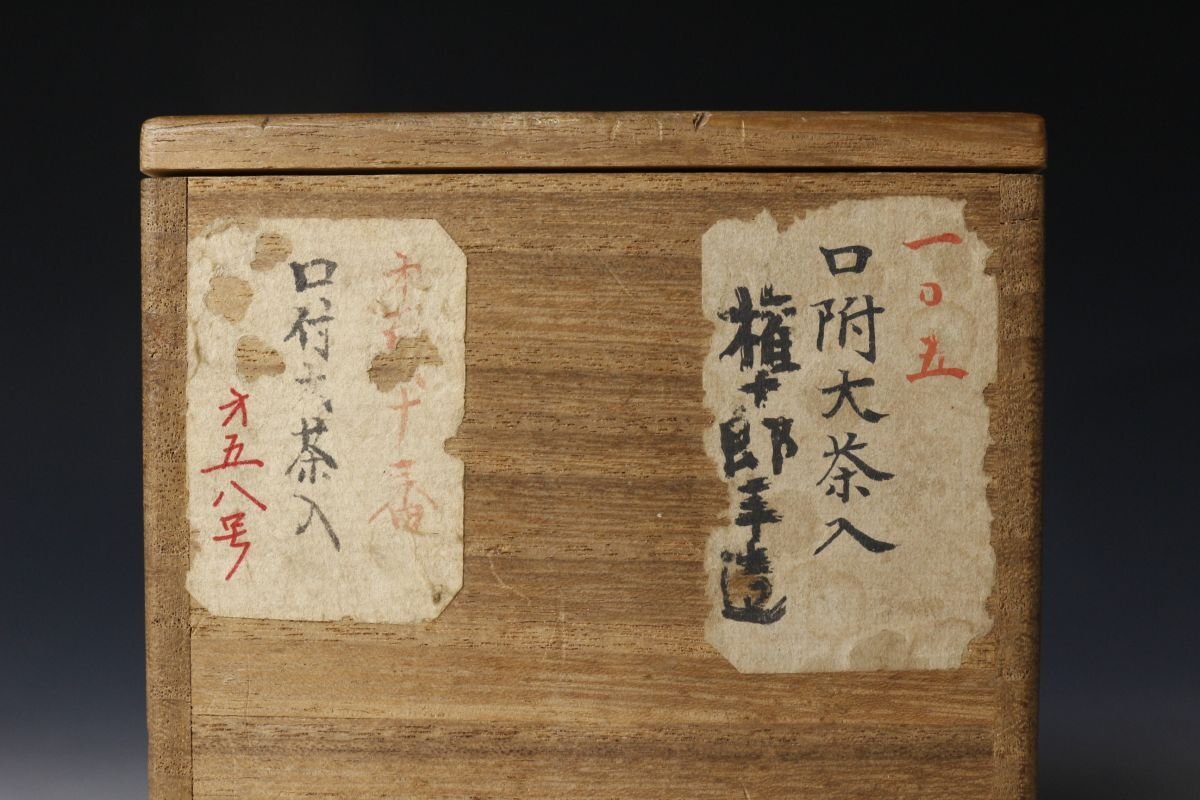 一〇五
口附大茶入
権十郎手造
十番
口付大茶入
才五八号